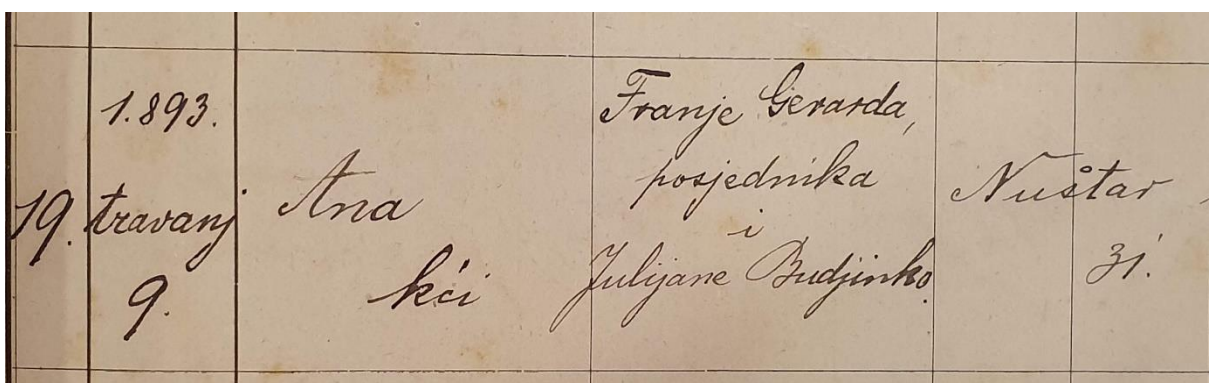 1.893.
19. travanj
9.
Ana
kći
Franje Gerarda,
posjednika
i
Julijane Budjinko.
Nuštar
31.